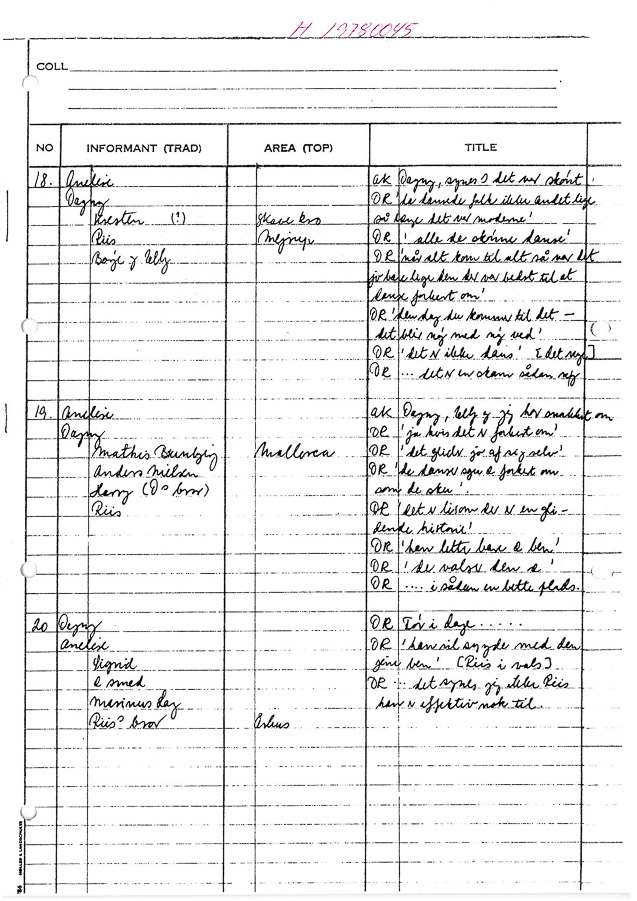 H 19780045
COLL
NO INFORMANT (TRAD) AREA (TOP) TITLE
18. Anelise AK Dagny, synes D det var skønt
Dagny DR 'de dannede folk ikke andet lige
Kresten (?) Skave kro så længe det var moderne'
Riis Mejrup DR ' alle de skrinne danse'
Børge g Elly DR 'når alt kom til alt så var det
jo bare lige den der var bedst til at
danse forkert om'
DR 'den dag du kommer til det –
det bliv nøj med nøj ved'
DR 'det N ikke dans' [det nye]
DR ... det N en skam sådan nøj
19. Anelise AK Dagny, Elly g jeg har snakket om
Dagny DR 'ja hvis det N forkert om'
Mathis Mallorca DR 'det glidr jo af sig selv'
Anders Nielsen DR 'de danser sgu e forkert om
Harry (D's bror) som de sku'.
Riis DR 'det N lisom der N en gli-
dende historie'
DR 'han lette bare e ben'
DR ' de valser den e '
DR .... i sådan en bette plads.
20 Dagny DR Tør i dage .....
Anelise DR 'han vil syyde med den
Sigrid jene ben' [Riis i vals]
e smed DR ... det synes jeg ikke Riis
Marinus dag han N effektiv nok til.
Riis' bror Århus
MØLLER & LANDSCHULTZ
'66